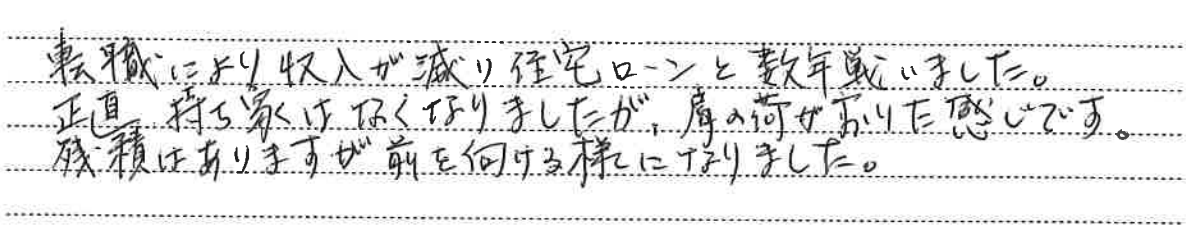 転職により収入が減り住宅ローンと数年戦いました。
正直 持ち家ではなくなりましたが、肩の荷がおりた感じです。
残積はありますが前を向ける様になりました。